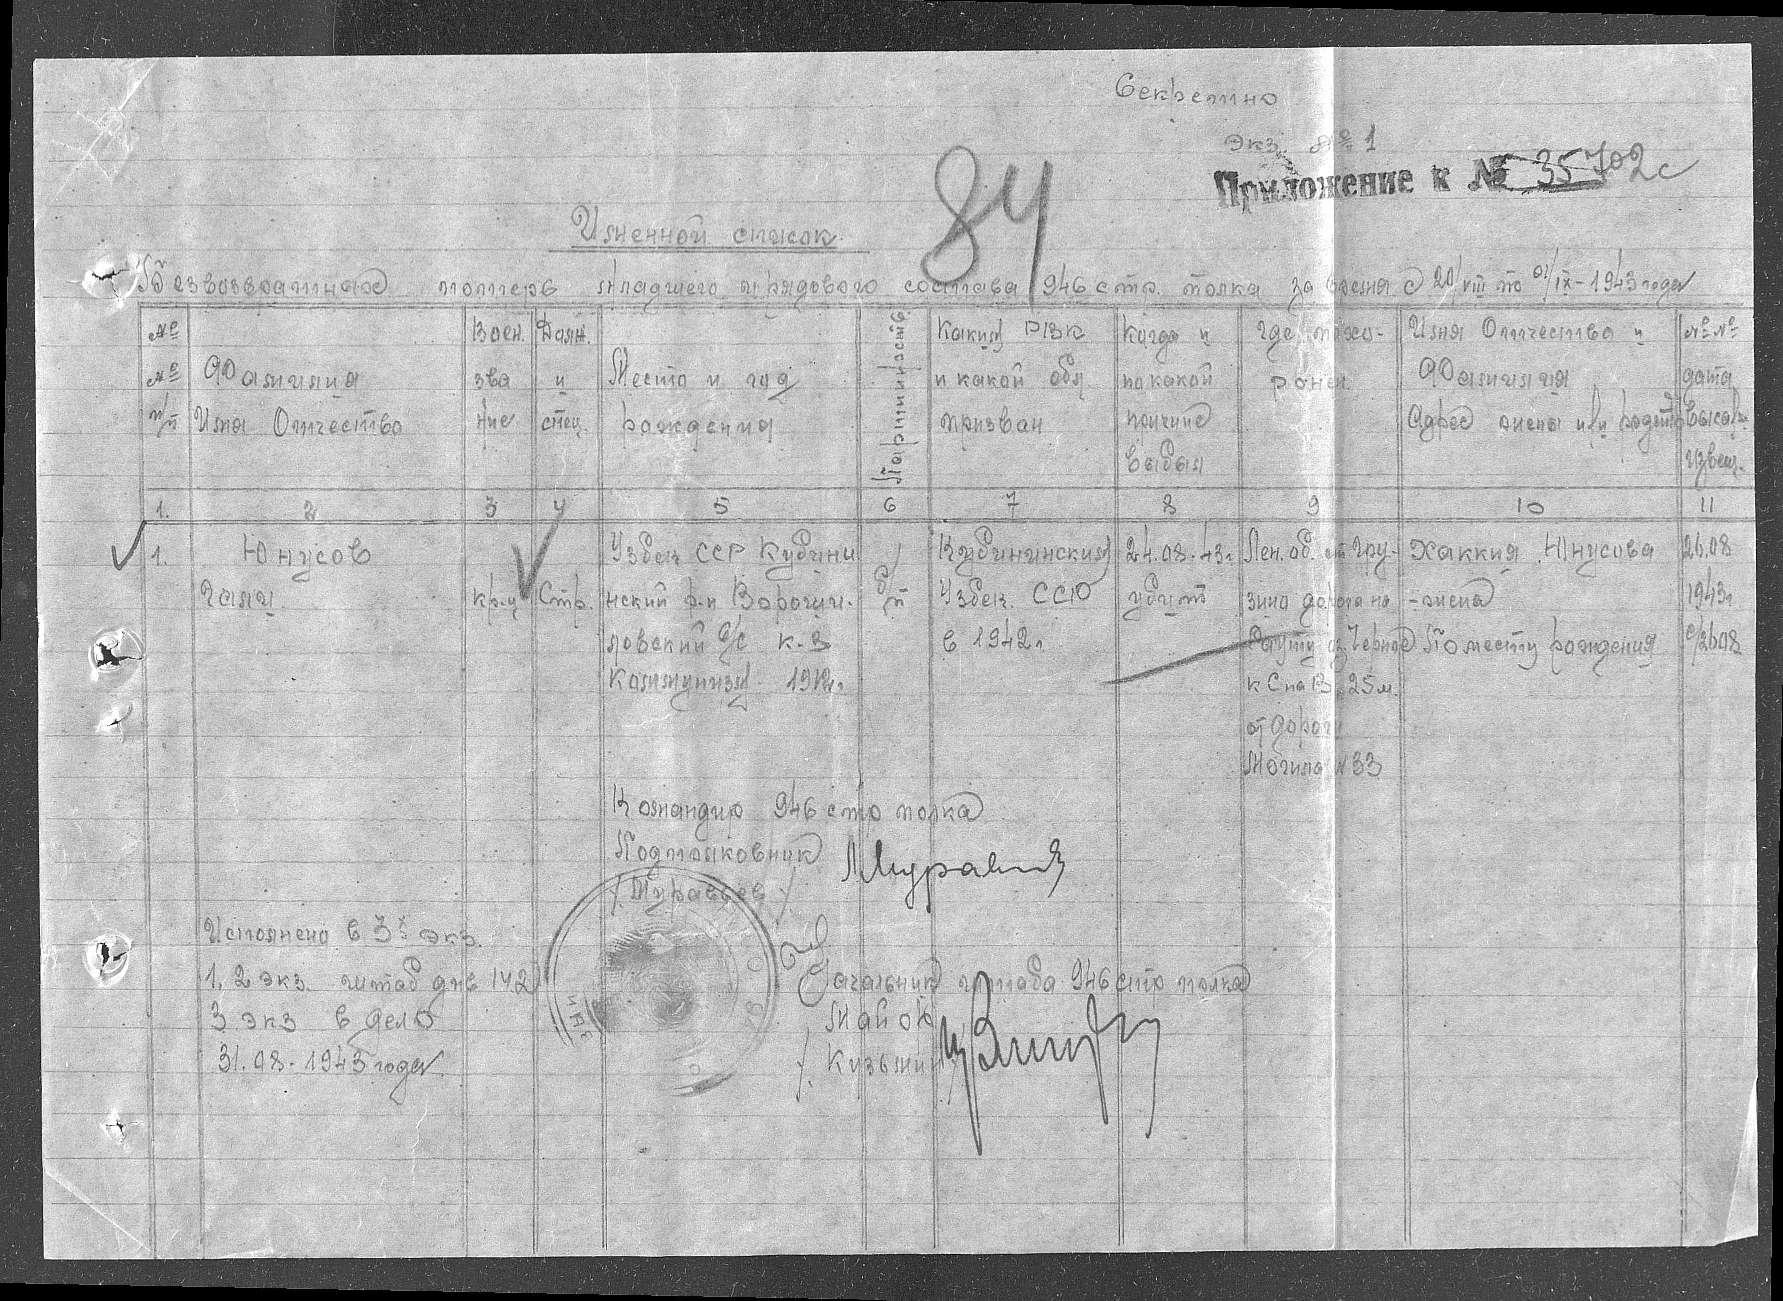 Секретно
Экз. № 1
Приложение к № 35702с
84
Именной список
Безвозвратных потерь младшего и рядового состава 946 стр. полка за время с 20/VIII по 01/IX-1943 года
№ № п/п
Фамилия Имя Отчество
Воен. зва ние
Долж. и спец.
Место и год рождения
Партийность
Каким РВК и какой обл. призван
Когда и по какой причине выбыл
Где похо- ронен
Имя Отчество и Фамилия Адрес жены или родит
№ № дата высылк. извещ.
1. 2 3 4 5 6 7 8 9 10 11
1. Юнусов Узбек. ССР Кубини Кубининским 24.08.43г. Лен. об. Хаккия Юнусова 26.08
кр-ц Стр. нский р-н Вороши- б/п Узбек. ССР убит зино дорога на - жена 1943г
ловский с/с к-з в 1942г По месту рождения 26.08
Коммунизм 1912г. к С на В. 25 м.
от дороги
Могила № 33
Командир 946 стр полка
Подполковник
/Муравьев/
Исполнено в 3х экз.
1, 2 экз. штаб див 142
3 экз в дело
31.08-1943 года
Начальник штаба 946 стр полка
Майор
/Кузьмин/